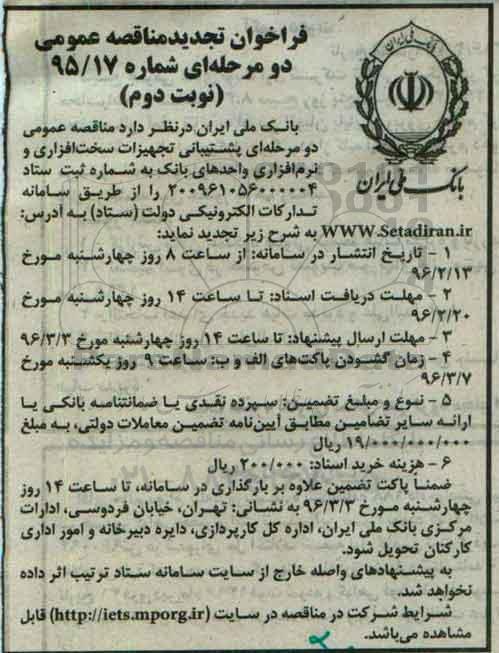 فراخوان تجدیدمناقصه عمومی
دو مرحله‌ای شماره ۹۵/۱۷
(نوبت دوم)
بانک ملی ایران
بانک ملی ایران درنظر دارد مناقصه عمومی
دو مرحله‌ای پشتیبانی تجهیزات سخت‌افزاری و
نرم‌افزاری واحدهای بانک به شماره ثبت ستاد
۲۰۰۹۶۱۰۵۶۰۰۰۰۰۴ را از طریق سامانه
تدارکات الکترونیکی دولت (ستاد) به آدرس:
WWW.Setadiran.ir به شرح زیر تجدید نماید:
۱ - تاریخ انتشار در سامانه: از ساعت ۸ روز چهارشنبه مورخ
۹۶/۲/۱۳
۲ - مهلت دریافت اسناد: تا ساعت ۱۴ روز چهارشنبه مورخ
۹۶/۲/۲۰
۳ - مهلت ارسال پیشنهاد: تا ساعت ۱۴ روز چهارشنبه مورخ ۹۶/۳/۳
۴ - زمان گشودن پاکت‌های الف و ب: ساعت ۹ روز یکشنبه مورخ
۹۶/۳/۷
۵ - نوع و مبلغ تضمین: سپرده نقدی یا ضمانتنامه بانکی یا
ارائه سایر تضامین مطابق آیین‌نامه تضمین معاملات دولتی، به مبلغ
۱۹/۰۰۰/۰۰۰/۰۰۰ ریال
۶ - هزینه خرید اسناد: ۲۰۰/۰۰۰ ریال
ضمناً پاکت تضمین علاوه بر بارگذاری در سامانه، تا ساعت ۱۴ روز
چهارشنبه مورخ ۹۶/۳/۳ به نشانی: تهران، خیابان فردوسی، ادارات
مرکزی بانک ملی ایران، اداره کل کارپردازی، دایره دبیرخانه و امور اداری
کارکنان تحویل شود.
به پیشنهادهای واصله خارج از سایت سامانه ستاد ترتیب اثر داده
نخواهد شد.
شرایط شرکت در مناقصه در سایت (http://iets.mporg.ir) قابل
مشاهده می‌باشد.